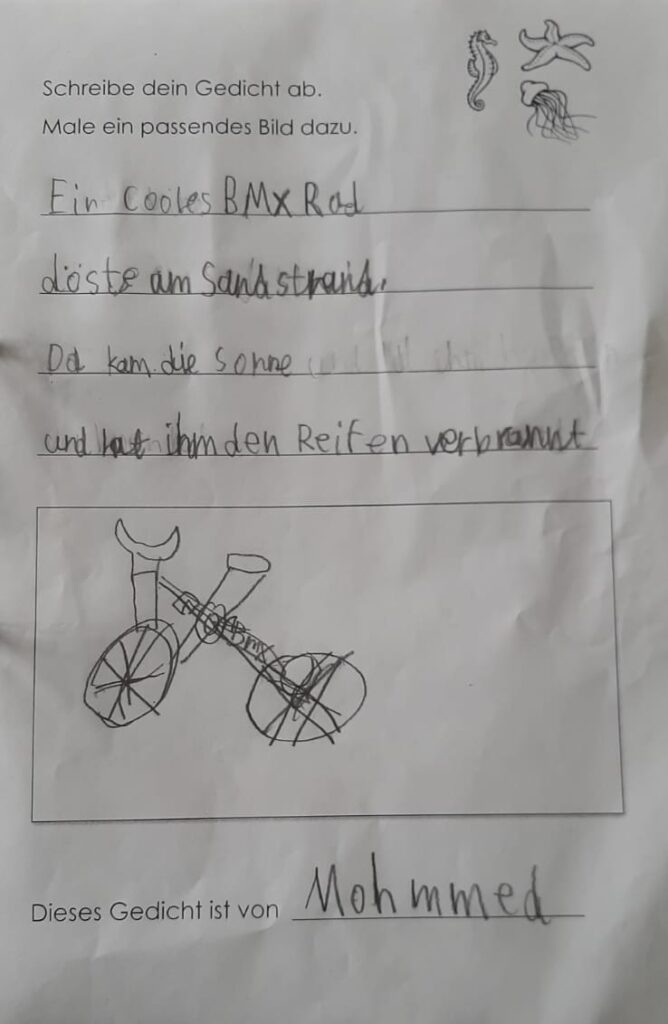 Schreibe dein Gedicht ab.
Male ein passendes Bild dazu.
Ein cooles BMX Rad
döste am Sandstrand.
Da kam die Sonne
und hat ihm den Reifen verbrannt
BMX
Dieses Gedicht ist von Mohmmed